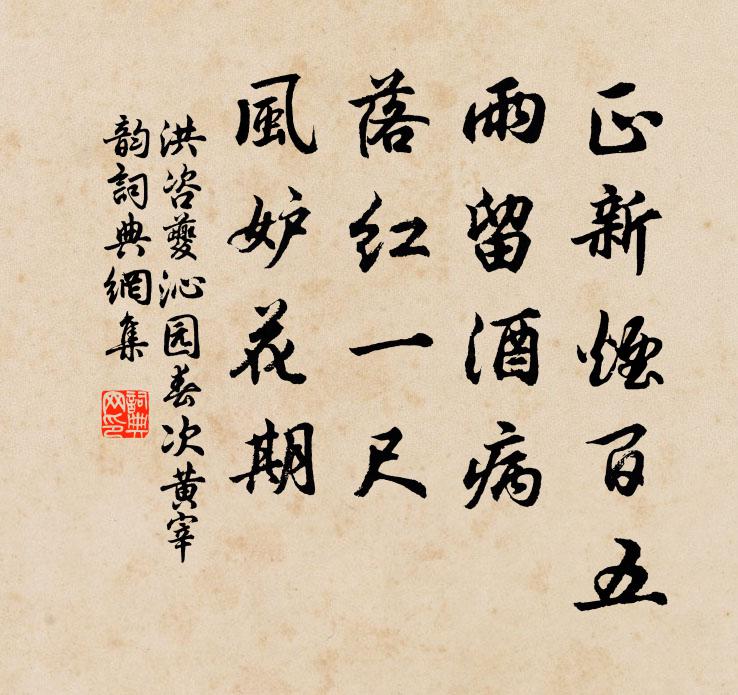 正新煙百五
雨留酒病
落紅一尺
風妒花期
洪咨夔沁园春次黄宰
韵詞典網集
詞典
网印